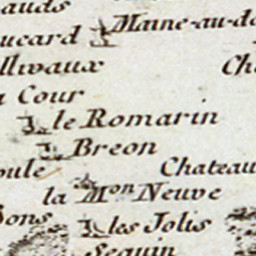 auds
ucard Maine-au-do
llivaux Ch
a Cour
le Romarin
Breon
oule Chateau
la Mon Neuve
Bons les Jolis
Seguin